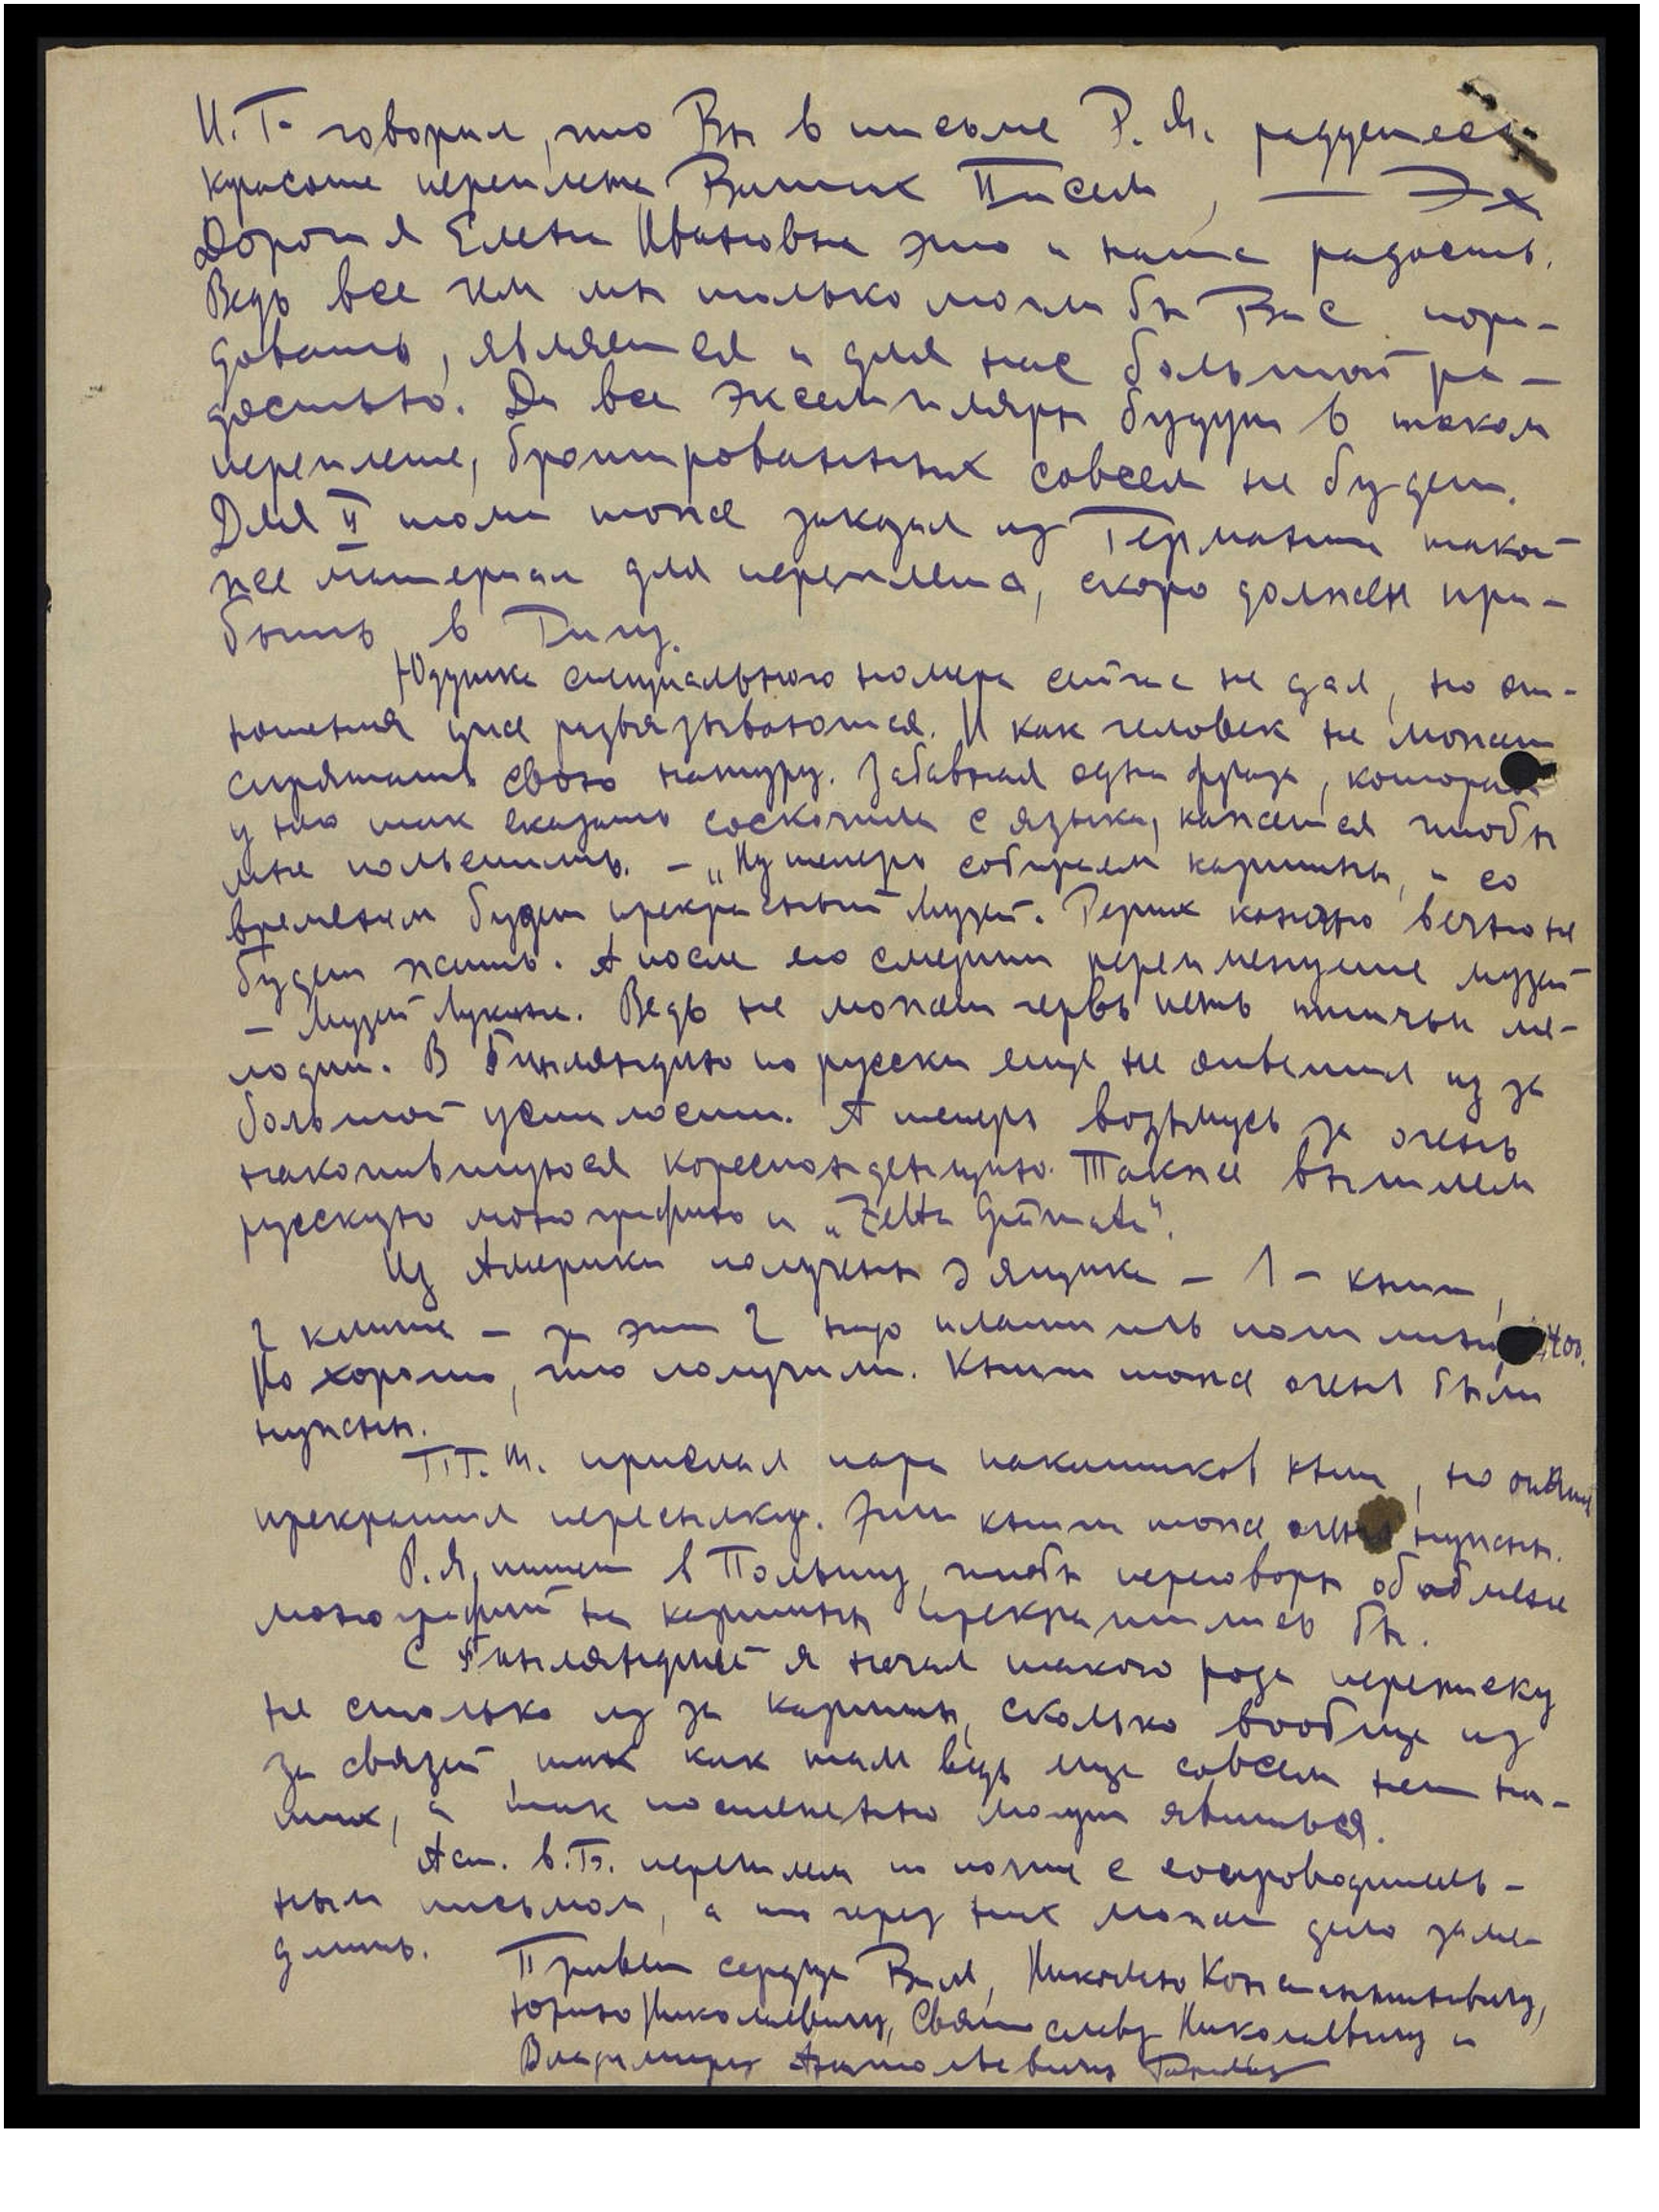 И. Г. говорил, что Вы в письме Р. Я. радуетесь
красоте переплета Ваших Писем, —
Дорогая Елена Ивановна это и наша радость.
Ведь все чем мы только могли бы Вас пора-
довать, является и для нас большой ра-
достью. Да все экземпляры будут в таком
переплете, брошированных совсем не будет.
Для II тома тоже заказал из Германии такой
же материал для переплета, скоро должен при-
быть в Ригу.
Юдушка специального номера сейчас не дал, но от-
ношения уже развязываются. И как человек не может
спрятать свою натуру. Забавная одна фраза, которая
у него так сказать соскочила с языка, кажется чтобы
мне польстить. – „Ну теперь собираем картины, и со
временем будет прекрасный Музей. Рерих конечно вечно не
будет жить. А после его смерти переименуете музей
– Музей Лукина. Ведь не может червь петь птичьи ме-
лодии. В Финляндию по русски еще не ответил из за
большой усталости. А теперь возьмусь за очень
накопившуюся кореспонденцию. Также вышлем
русскую монографию и „Zelta Grāmata“.
Из Америки получены 3 ящика – 1 – книги,
2 клише – за эти 2 надо платить пошлину 400.
Но хорошо, что получили. Книги тоже очень были
нужны.
Г.Г. Ш. прислал пара пакетиков книг, но опять
прекратил пересылку. Эти книги тоже очень нужны.
Р. Я. пишет в Польшу, чтобы переговоры об обмене
монографий на картины прекратились бы.
С Финляндией я начал такого рода переписку
не столько из за картины, сколько вообще из
за связей, так как там ведь еще совсем нет на-
ших, а так постепенно могут явиться.
Аст. в. Б. перешлем по почте с сопроводитель-
ным письмом, а то через них может дело заме-
длить.
Привет сердца Вам, Николаю Константиновичу,
Юрию Николаевичу, Святославу Николаевичу и
Владимиру Анатольевичу